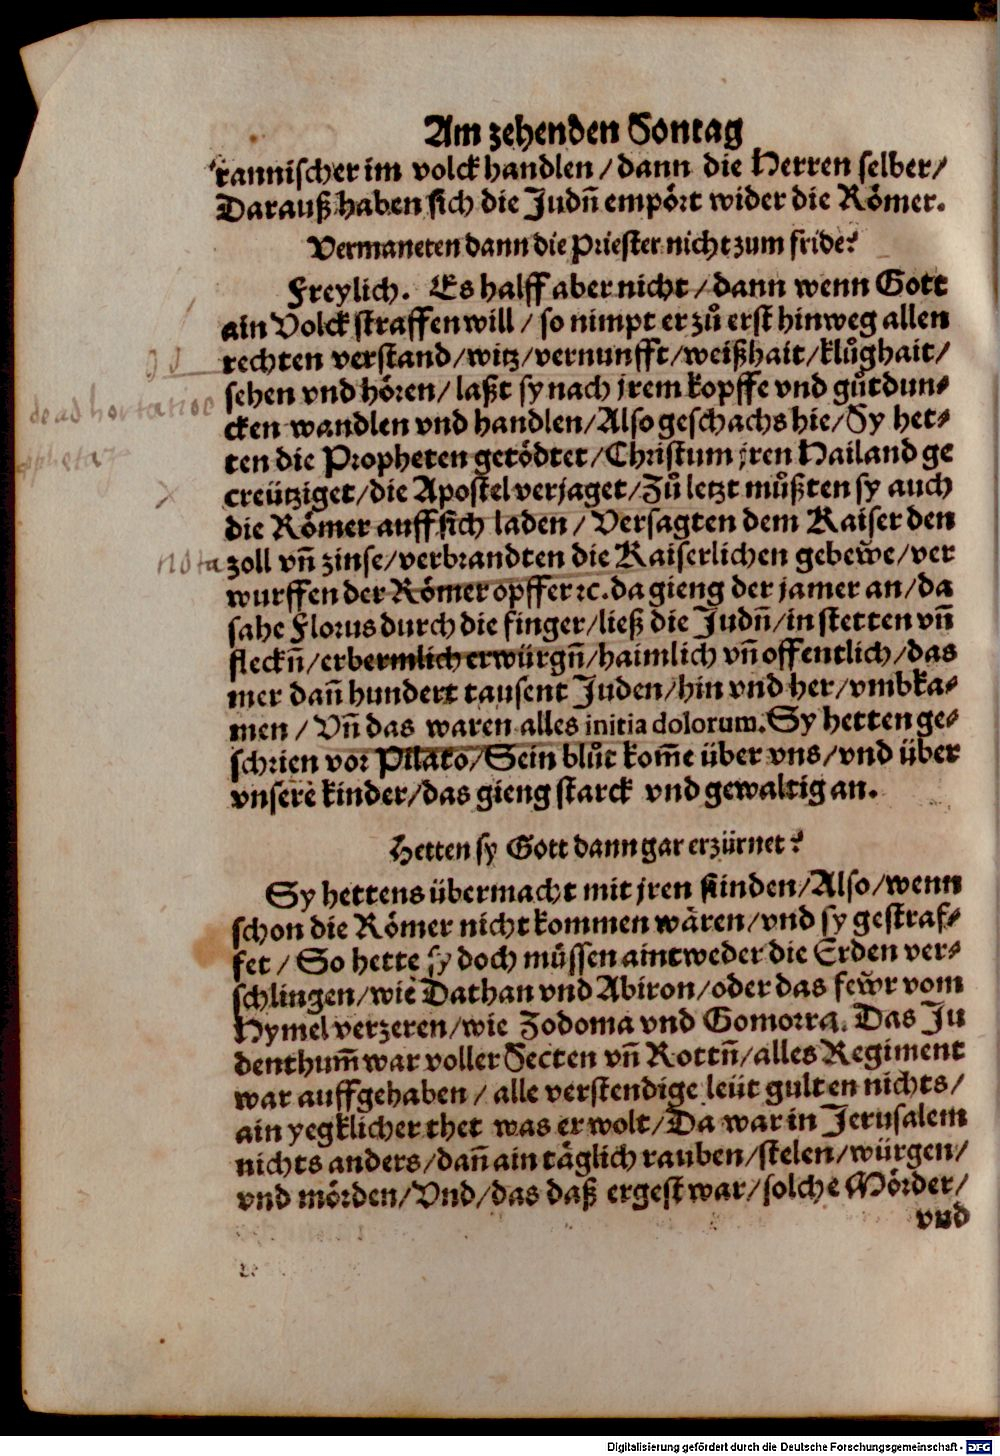 Am zehenden Sontag
rannischer im volck handlen / dann die Herren selber /
Darauß haben sich die Judñ empört wider die Römer.
Vermaneten dann die Priester nicht zum fride?
Freylich. Es halff aber nicht / dann wenn Gott
ain Volck straffen will / so nimpt er zů erst hinweg allen
rechten verstand / witz / vernunfft / weißhait / klůghait /
sehen vnd hören / laßt sy nach jrem kopffe vnd gůtdun⸗
cken wandlen vnd handlen / Also geschachs hie / Sy het⸗
dehortatioe
ten die Propheten getödtet / Christum jren Hailand ge
creütziget / die Apostel verjaget / Zů letzt můßten sy auch
die Römer auff sich laden / Versagten dem Kaiser den
nota
zoll vñ zinse / verbrandten die Kaiserlichen gebew̆e / ver
wurffen der Römer opffer ꝛc. da gieng der jamer an / da
sahe Florus durch die finger / ließ die Judñ / in stetten vñ
fleckñ / erbermlich erwürgñ / haimlich vñ offentlich / das
mer dañ hundert tausent Juden / hin vnd her / vmbka⸗
men / Vñ das waren alles initia dolorum. Sy hetten ge⸗
schrien vor Pilato / Sein blůt kom̃e über vns / vnd über
vnsere kinder / das gieng starck vnd gewaltig an.
Hetten sy Gott dann gar erzürnet?
Sy hettens übermacht mit jren sünden / Also / wenn
schon die Römer nicht kommen wären / vnd sy gestraf⸗
fet / So hette sy doch müssen aintweder die Erden ver⸗
schlingen / wie Dathan vnd Abiron / oder das few̆r vom
Hymel verzeren / wie Zodoma vnd Gomorra. Das Ju
denthum̃ war voller Secten vñ Rottñ / alles Regiment
war auffgehaben / alle verstendige leüt gulten nichts /
ain yegklicher thet was er wolt / Da war in Jerusalem
nichts anders / dañ ain täglich rauben / stelen / würgen /
vnd mörden / Vnd / das daß ergest war / solche Mörder /
vnd
Digitalisierung gefördert durch die Deutsche Forschungsgemeinschaft - DFG